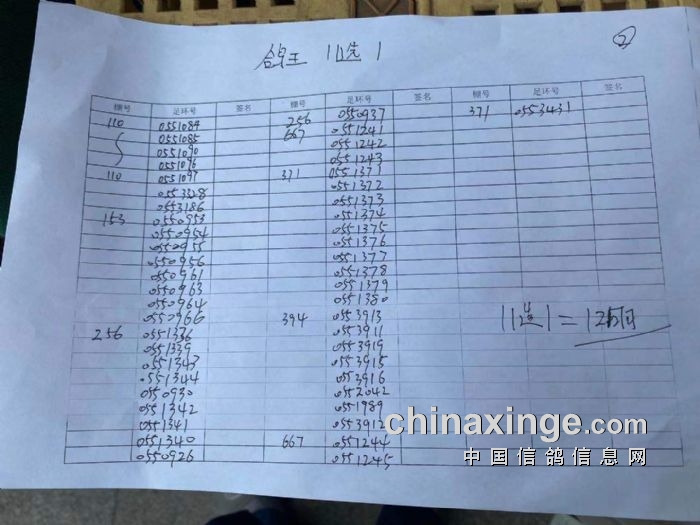 ②
鸽王 11选1
棚号 足环号 签名 棚号 足环号 签名 棚号 足环号 签名
110 0551084 256 0550937 371 0553431
0551085 667 0551241
0551090 0551242
0551096 0551243
110 0551097 371 0551371
0553328 0551372
0553186 0551373
153 0550953 0551374
0550954 0551375
0550955 0551376
0550956 0551377
0550961 0551378
0550963 0551379
0550964 0551380
0550966 394 0553913
256 0551336 0553911
0551339 0553919
0551343 0553915
0551344 0553916
0550930 0552042
0551342 0551989
0551341 0553912
0551340 667 0551244
0550926 0551245
11选1=12
chinaxinge.com
中国信鸽信息网